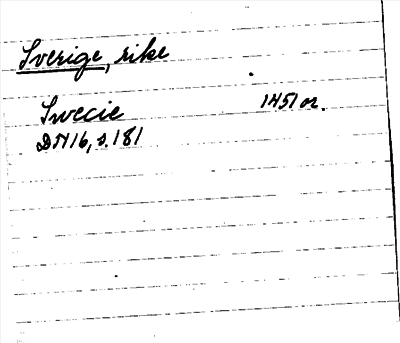 Sverige, rike
Swecie 1451 or.
DN 16, s. 181